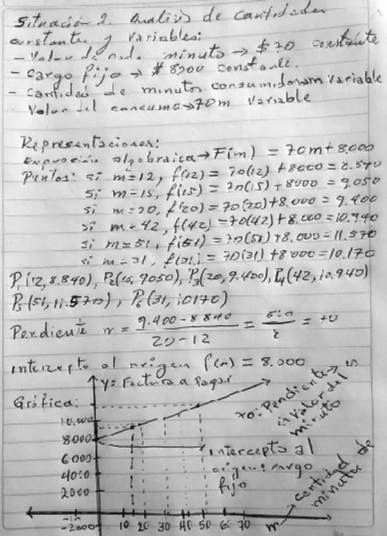 Situación 2. Analisis de Cantidades
constantes y variables:
- Valor de cada minuto → $70 constante
- Cargo fijo → $8000 constante.
- Cantidad de minutos consumidos → m variable
Valor del consumo → 70m variable
Representaciones:
Expresión algebraica → F(m) = 70m + 8.000
Puntos: si m=12, f(12) = 70(12) + 8000 = 8.840
si m=15, f(15) = 70(15) + 8000 = 9.050
si m=20, f(20) = 70(20) + 8.000 = 9.400
si m=42, f(42) = 70(42) + 8.000 = 10.940
si m=51, f(51) = 70(51) + 8.000 = 11.570
si m=31, f(31) = 70(31) + 8000 = 10.170
P₁(12, 8.840), P₂(15, 9050), P₃(20, 9.400), P₄(42, 10.940)
P₅(51, 11.570), P₆(31, 10170)
Pendiente = 9.400 - 8840 / 20 - 12 = 560 / 8 = 70
intercepto al origen = 8.000
Gráfica:
Y: Factura a Pagar
70: Pendiente →
Valor del
minuto
8000
6000
4000
2000
-2000
-10
10 20 30 40 50 60 70
intercepto al
origen: cargo
fijo
m → cantidad de
minutos